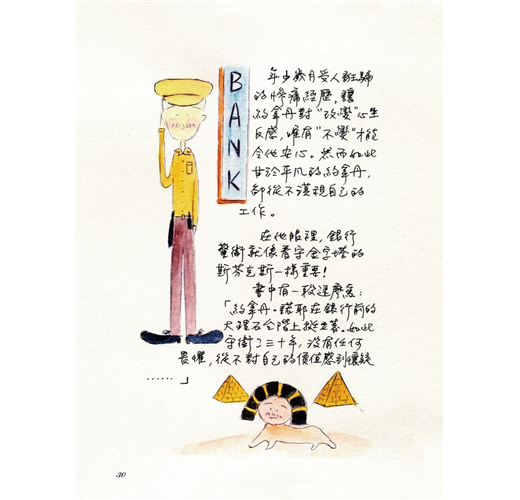 BANK
年少歲月受人誆騙
的慘痛經歷,讓
約拿丹對"改變"心生
反感,唯有"不變"才能
令他安心。然而如此
甘於平凡的約拿丹,
卻從不漠視自己的
工作。
在他眼裡,銀行
警衛就像看守金字塔的
斯芬克斯一樣重要!
書中有一段這麼寫:
「約拿丹·諾耶在銀行前的
大理石台階上挺立著。如此
守衛了三十年,沒有任何
畏懼,從不對自己的價值感到懷疑
……」
30